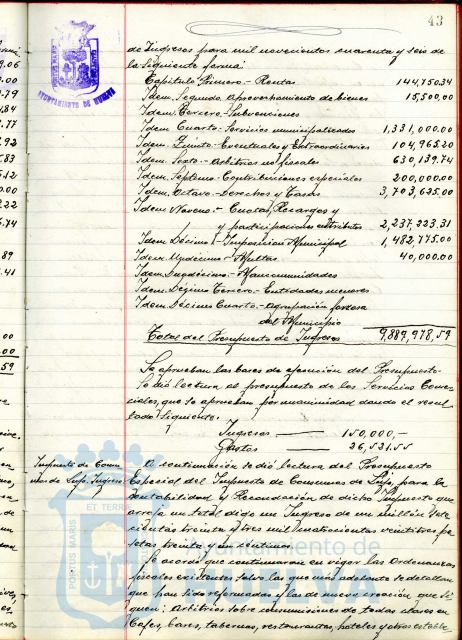 43
de Ingresos para mil novecientos cuarenta y seis de
la siguiente forma:
Capítulo Primero.- Rentas 144,750.34
Idem. Segundo. Aprovechamiento de bienes 15,500.00
Idem. Tercero.- Subvenciones
Idem Cuarto.- Servicios municipalizados 1,331,000.00
Idem. Quinto.- Eventuales y Extraordinarios 104,965.20
Idem. Sexto.- Arbitrios no fiscales 630,139.74
Idem. Septimo.- Contribuciones especiales 200,000.00
Idem. Octavo.- Derechos y Tasas 3,703,625.00
Idem Noveno.- Cuotas, Recargos y
y participaciones en tributos 2,237,223.31
Idem. Décimo.- Imposicion Municipal 1,482,775.00
Idem. Undécimo.- Multas 40,000.00
Idem. Duodécimo.- Mancomunidades
Idem. Décimo Tercero.- Entidades menores
Idem. Décimo Cuarto.- Agrupación forzosa
del Municipio
Total del Presupuesto de Ingresos 9,889,978,59
Se aprueban las bases de ejecución del Presupuesto.
Se dió lectura al presupuesto de los Servicios Comer-
ciales, que se aprueban por unanimidad dando el resul-
tado siguiente.
Ingresos 150,000,-
Gastos 26,521.55
Impuesto de Consu-
mos de Lujo. Ingreso.
A continuación se dió lectura del Presupuesto
Especial del Impuesto de Consumos de Lujo, para la
Contabilidad y Recaudación de dicho Impuesto que
arroja un total digo un Ingreso de un millón
cientas treinta y tres mil cuatrocientas veintitres pe-
setas treinta y
Se acordó que continuaran en vigor las Ordenanzas
fiscales existentes salvo las que más adelante se detallan
que han sido reformadas y las de nueva creación que si-
guen: Arbitrios sobre consumisiones de todas clases en
Cafes, bares, tabernas, restaurantes, hoteles y otros estable
AYUNTAMIENTO DE HUELVA
PORTUS MARIS
ET TERR
Ayuntamiento de